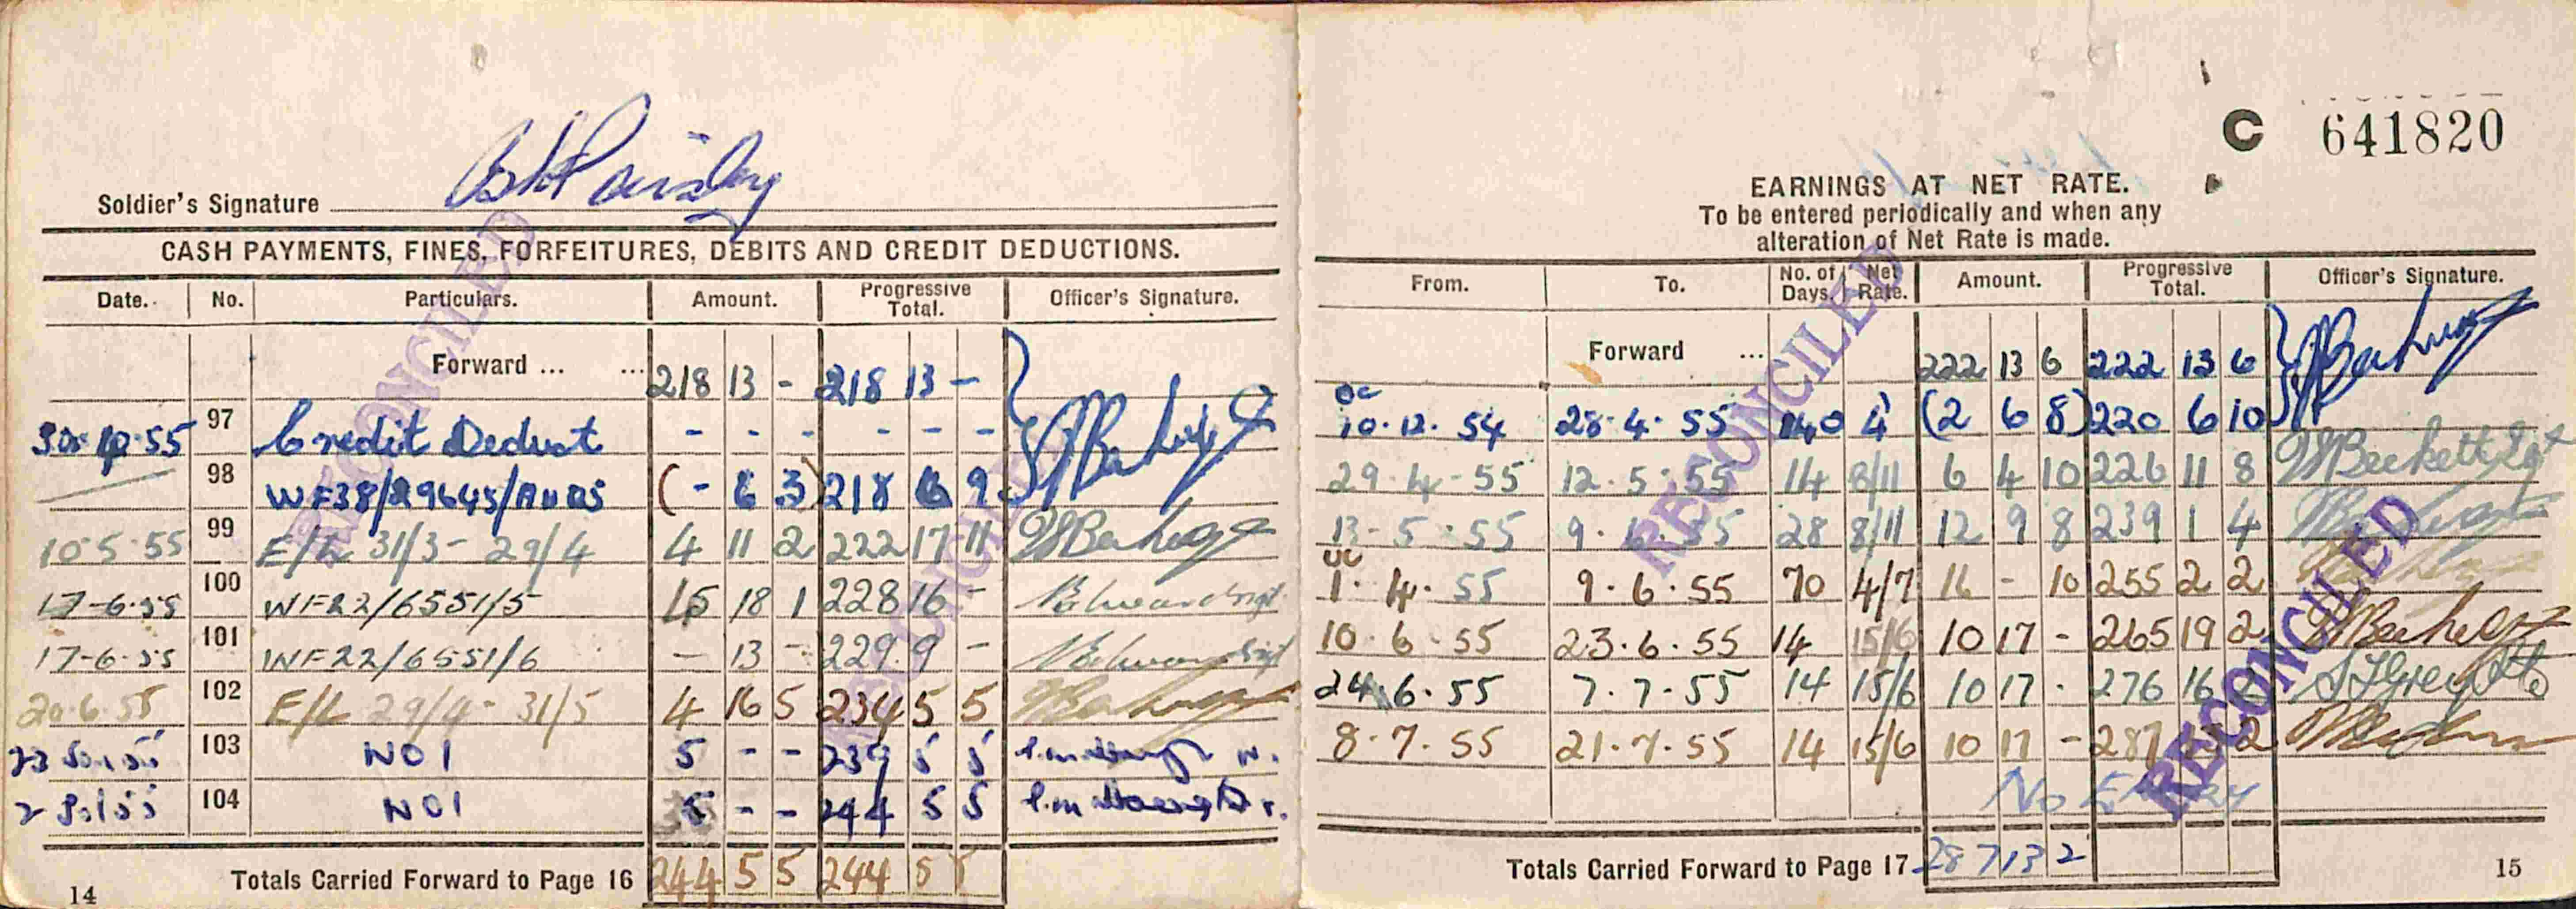 Soldier's Signature
CASH PAYMENTS, FINES, FORFEITURES, DEBITS AND CREDIT DEDUCTIONS.
Date. No. Particulars. Amount. Progressive Total. Officer's Signature.
Forward ... ... 218 13 - 218 13 -
55 97 Credit Deduct - - - - - -
98 WF38/ (- 6 3) 218 6 9
10-5-55 99 E/L 31/3 - 29/4 4 11 2 222 17 11
17-6-55 100 WF22/6551/5 5 18 1 228 16 -
17-6-55 101 WF22/6551/6 - 13 - 229 9 -
20.6.55 102 E/L 29/4 - 31/5 4 16 5 234 5 5
103 NO1 5 - - 239 5 5
104 NO1 5 - - 244 5 5
Totals Carried Forward to Page 16 244 5 5 244 5 5
14
RECONCILED
RECONCILED
C 641820
EARNINGS AT NET RATE.
To be entered periodically and when any
alteration of Net Rate is made.
From. To. No. of Days. Net Rate. Amount. Progressive Total. Officer's Signature.
Forward ... 222 13 6 222 13 6
OC
10.12.54 28.4.55 140 4 (2 6 8) 220 6 10
29.4-55 12.5.55 14 8/11 6 4 10 226 11 8 Beckett Sgt
13-5-55 9.6.55 28 8/11 12 9 8 239 1 4
UC
1.4.55 9.6.55 70 4/7 16 - 10 255 2 2
10.6.55 23.6.55 14 15/6 10 17 - 265 19 2
24.6.55 7.7.55 14 15/6 10 17 - 276 16 2
8.7.55 21.7.55 14 15/6 10 17 - 287 13 2
No Entry
Totals Carried Forward to Page 17 287 13 2
15
RECONCILED
RECONCILED